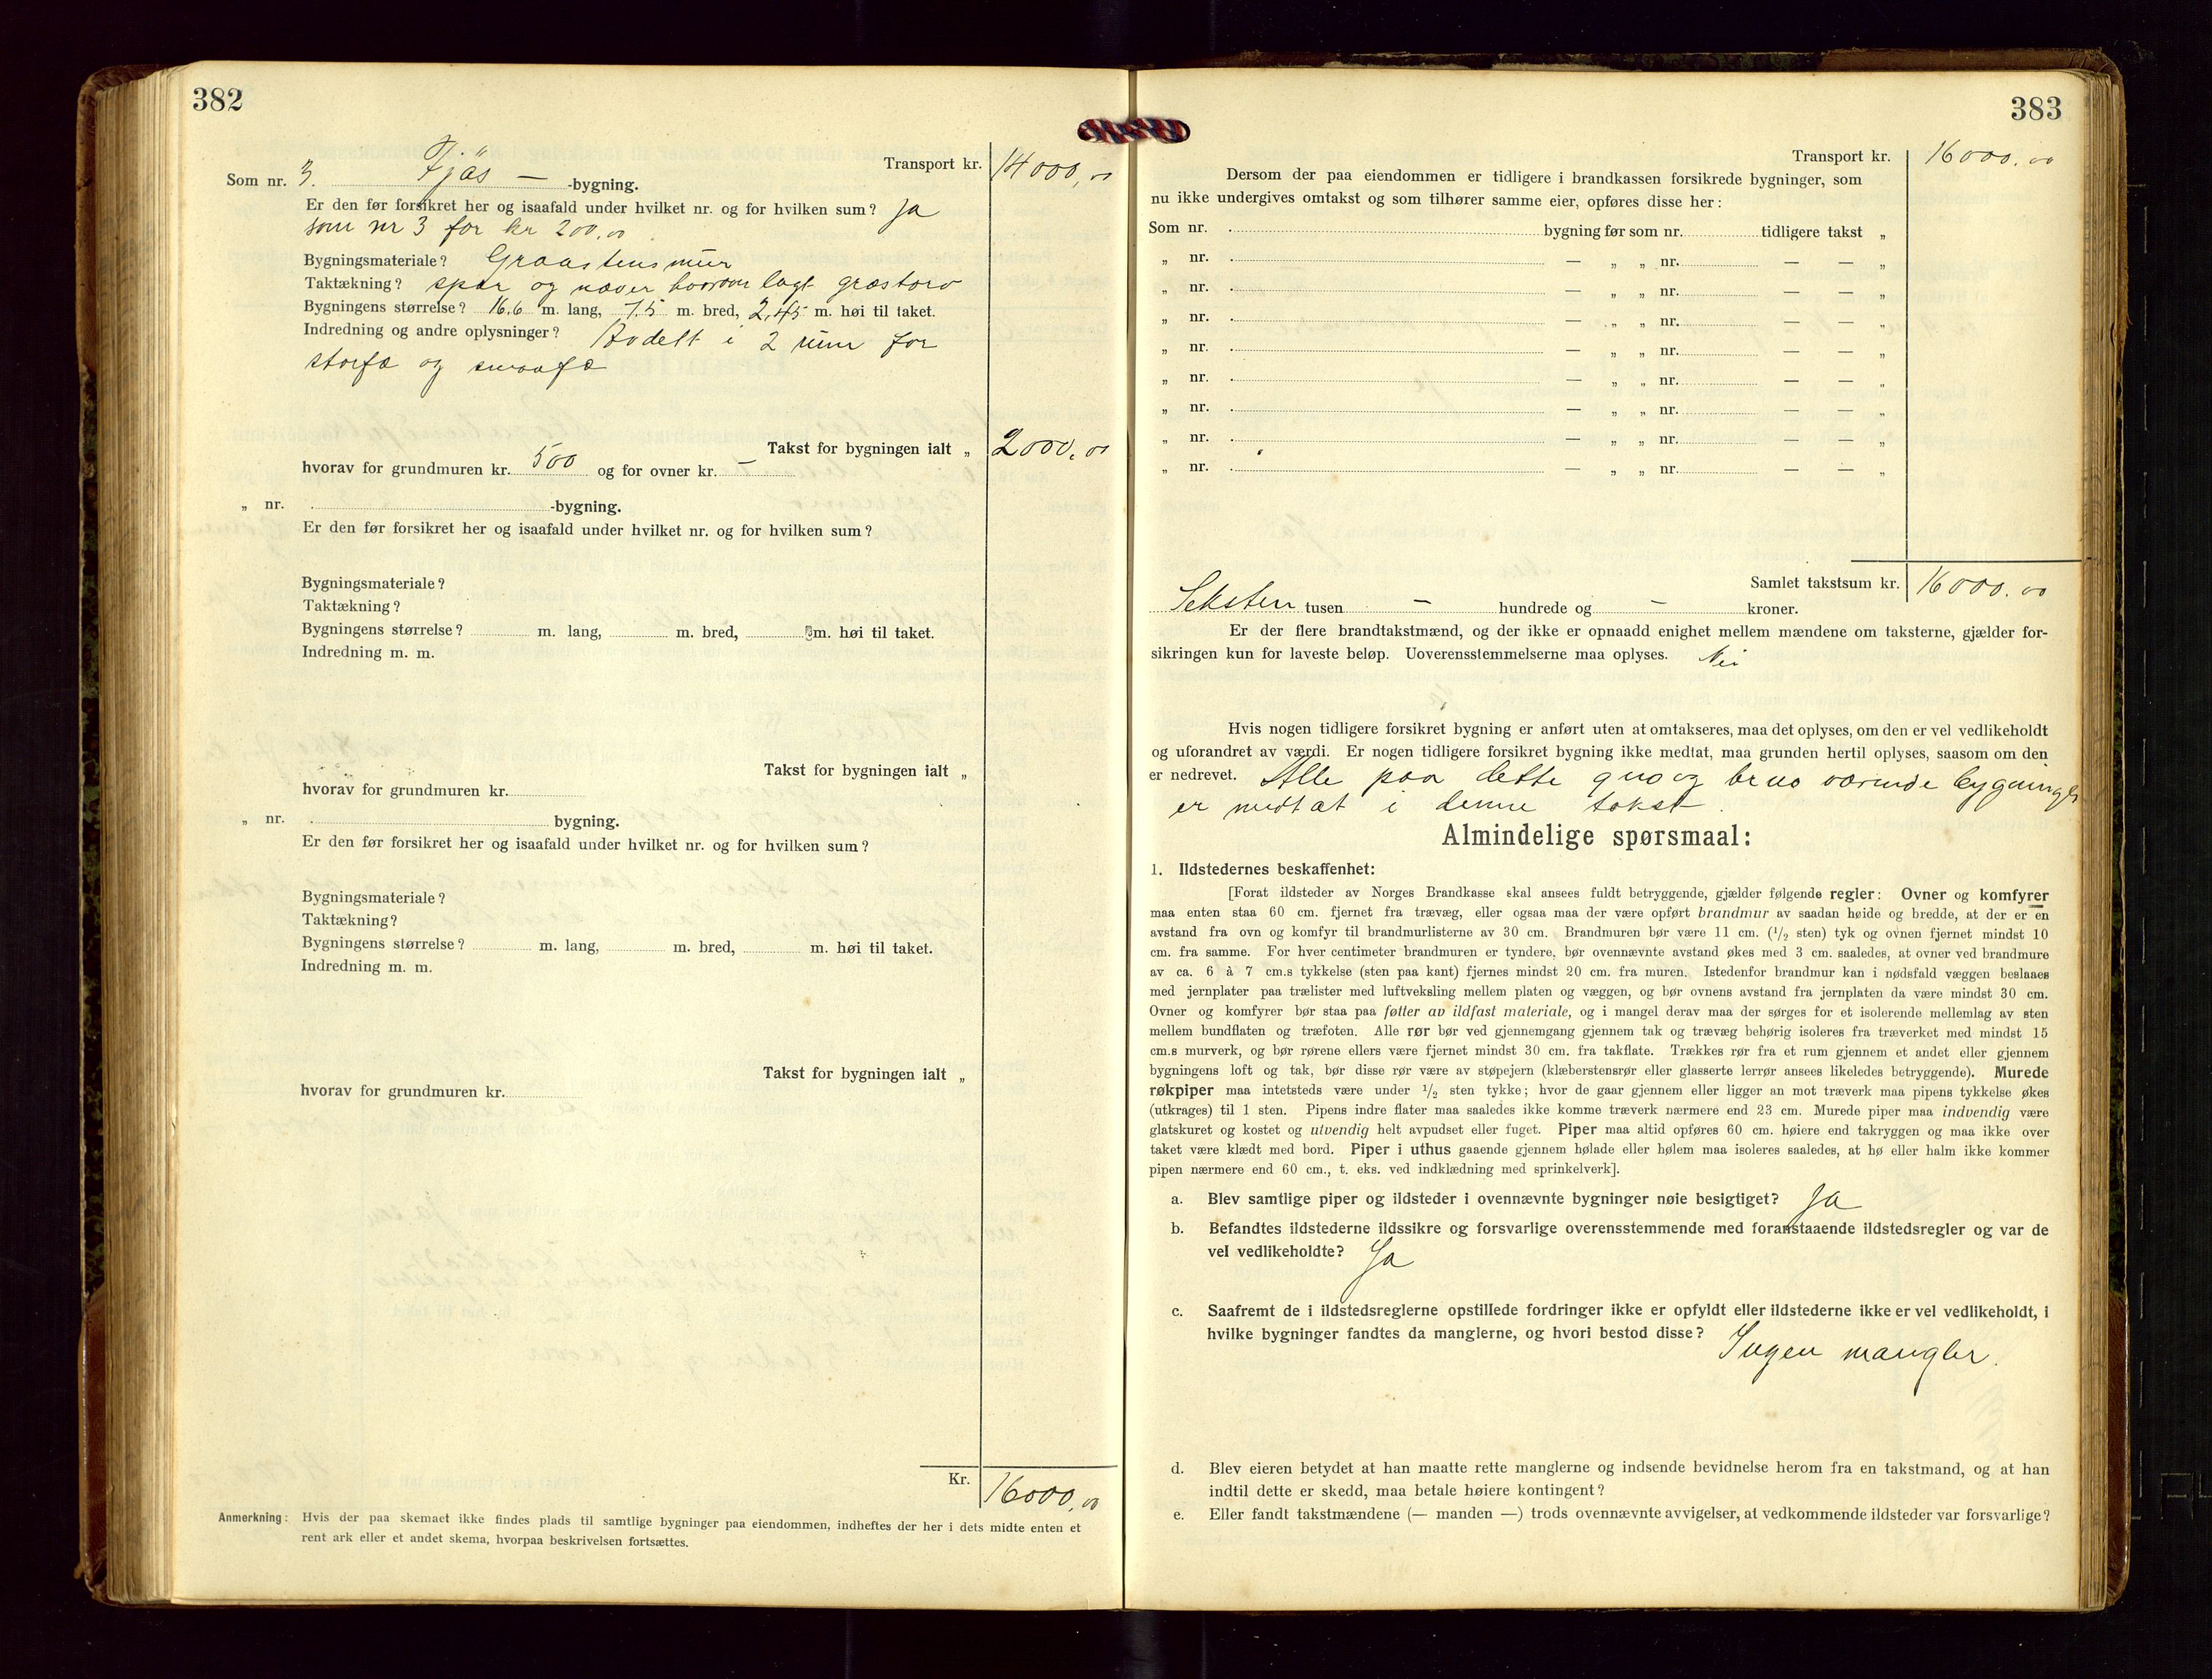 382
Transport kr. 14000,00
Som nr. 3. Fjøs — -bygning.
Er den før forsikret her og isaafald under hvilket nr. og for hvilken sum? Ja
som nr 3 for kr 200,00
Bygningsmateriale? Graastensmur
Taktækning? sper og næver hvorover lagt græstorv
Bygningens størrelse? 16.6 m. lang, 7.5 m. bred, 2,45 m. høi til taket.
Indredning og andre oplysninger? Avdelt i 2 rum for
storfæ og smaafæ
Takst for bygningen ialt „ 2000,00
hvorav for grundmuren kr. 500 og for ovner kr. —
„ nr. -bygning.
Er den før forsikret her og isaafald under hvilket nr. og for hvilken sum?
Bygningsmateriale?
Taktækning?
Bygningens størrelse? m. lang, m. bred, m. høi til taket.
Indredning m. m.
Takst for bygningen ialt „
hvorav for grundmuren kr.
„ nr. bygning.
Er den før forsikret her og isaafald under hvilket nr. og for hvilken sum?
Bygningsmateriale?
Taktækning?
Bygningens størrelse? m. lang, m. bred, m. høi til taket.
Indredning m. m.
Takst for bygningen ialt „
hvorav for grundmuren kr.
Kr. 16000,00
Anmerkning: Hvis der paa skemaet ikke findes plads til samtlige bygninger paa eiendommen, indheftes der her i dets midte enten et
rent ark eller et andet skema, hvorpaa beskrivelsen fortsættes.
383
Transport kr. 16000,00
Dersom der paa eiendommen er tidligere i brandkassen forsikrede bygninger, som
nu ikke undergives omtakst og som tilhører samme eier, opføres disse her:
Som nr. bygning før som nr. tidligere takst „
„ nr. — „ „ nr. — — „
„ nr. — „ „ nr. — — „
„ nr. — „ „ nr. — — „
„ nr. — „ „ nr. — — „
„ nr. — „ „ nr. — — „
„ nr. — „ „ nr. — — „
„ nr. — „ „ nr. — — „
„ nr. — „ „ nr. — — „
Samlet takstsum kr. 16000.00
Seksten tusen — hundrede og — kroner.
Er der flere brandtakstmænd, og der ikke er opnaadd enighet mellem mændene om taksterne, gjælder for-
sikringen kun for laveste beløp. Uoverensstemmelserne maa oplyses. Nei
Hvis nogen tidligere forsikret bygning er anført uten at omtakseres, maa det oplyses, om den er vel vedlikeholdt
og uforandret av værdi. Er nogen tidligere forsikret bygning ikke medtat, maa grunden hertil oplyses, saasom om den
er nedrevet. Alle paa dette gno og brno værende bygninger
er medtat i denne takst.
Almindelige spørsmaal:
1. Ildstedernes beskaffenhet:
[Forat ildsteder av Norges Brandkasse skal ansees fuldt betryggende, gjælder følgende regler: Ovner og komfyrer
maa enten staa 60 cm. fjernet fra trævæg, eller ogsaa maa der være opført brandmur av saadan høide og bredde, at der er en
avstand fra ovn og komfyr til brandmurlisterne av 30 cm. Brandmuren bør være 11 cm. (1/2 sten) tyk og ovnen fjernet mindst 10
cm. fra samme. For hver centimeter brandmuren er tyndere, bør ovennævnte avstand økes med 3 cm. saaledes, at ovner ved brandmure
av ca. 6 à 7 cm.s tykkelse (sten paa kant) fjernes mindst 20 cm. fra muren. Istedenfor brandmur kan i nødsfald væggen beslaaes
med jernplater paa trælister med luftveksling mellem platen og væggen, og bør ovnens avstand fra jernplaten da være mindst 30 cm.
Ovner og komfyrer bør staa paa føtter av ildfast materiale, og i mangel derav maa der sørges for et isolerende mellemlag av sten
mellem bundflaten og træfoten. Alle rør bør ved gjennemgang gjennem tak og trævæg behørig isoleres fra træverket med mindst 15
cm.s murverk, og bør rørene ellers være fjernet mindst 30 cm. fra takflate. Trækkes rør fra et rum gjennem et andet eller gjennem
bygningens loft og tak, bør disse rør være av støpejern (klæberstensrør eller glasserte lerrør ansees likeledes betryggende). Murede
røkpiper maa intetsteds være under 1/2 sten tykke; hvor de gaar gjennem eller ligger an mot træverk maa pipens tykkelse økes
(utkrages) til 1 sten. Pipens indre flater maa saaledes ikke komme træverk nærmere end 23 cm. Murede piper maa indvendig være
glatskuret og kostet og utvendig helt avpudset eller fuget. Piper maa altid opføres 60 cm. høiere end takryggen og maa ikke over
taket være klædt med bord. Piper i uthus gaaende gjennem hølade eller hølem maa isoleres saaledes, at hø eller halm ikke kommer
pipen nærmere end 60 cm., t. eks. ved indklædning med sprinkelverk].
a. Blev samtlige piper og ildsteder i ovennævnte bygninger nøie besigtiget? Ja
b. Befandtes ildstederne ildssikre og forsvarlige overensstemmende med foranstaaende ildstedsregler og var de
vel vedlikeholdte? Ja
c. Saafremt de i ildstedsreglerne opstillede fordringer ikke er opfyldt eller ildstederne ikke er vel vedlikeholdt, i
hvilke bygninger fandtes da manglerne, og hvori bestod disse? Ingen mangler.
d. Blev eieren betydet at han maatte rette manglerne og indsende bevidnelse herom fra en takstmand, og at han
indtil dette er skedd, maa betale høiere kontingent?
e. Eller fandt takstmændene (— manden —) trods ovennævnte avvigelser, at vedkommende ildsteder var forsvarlige?